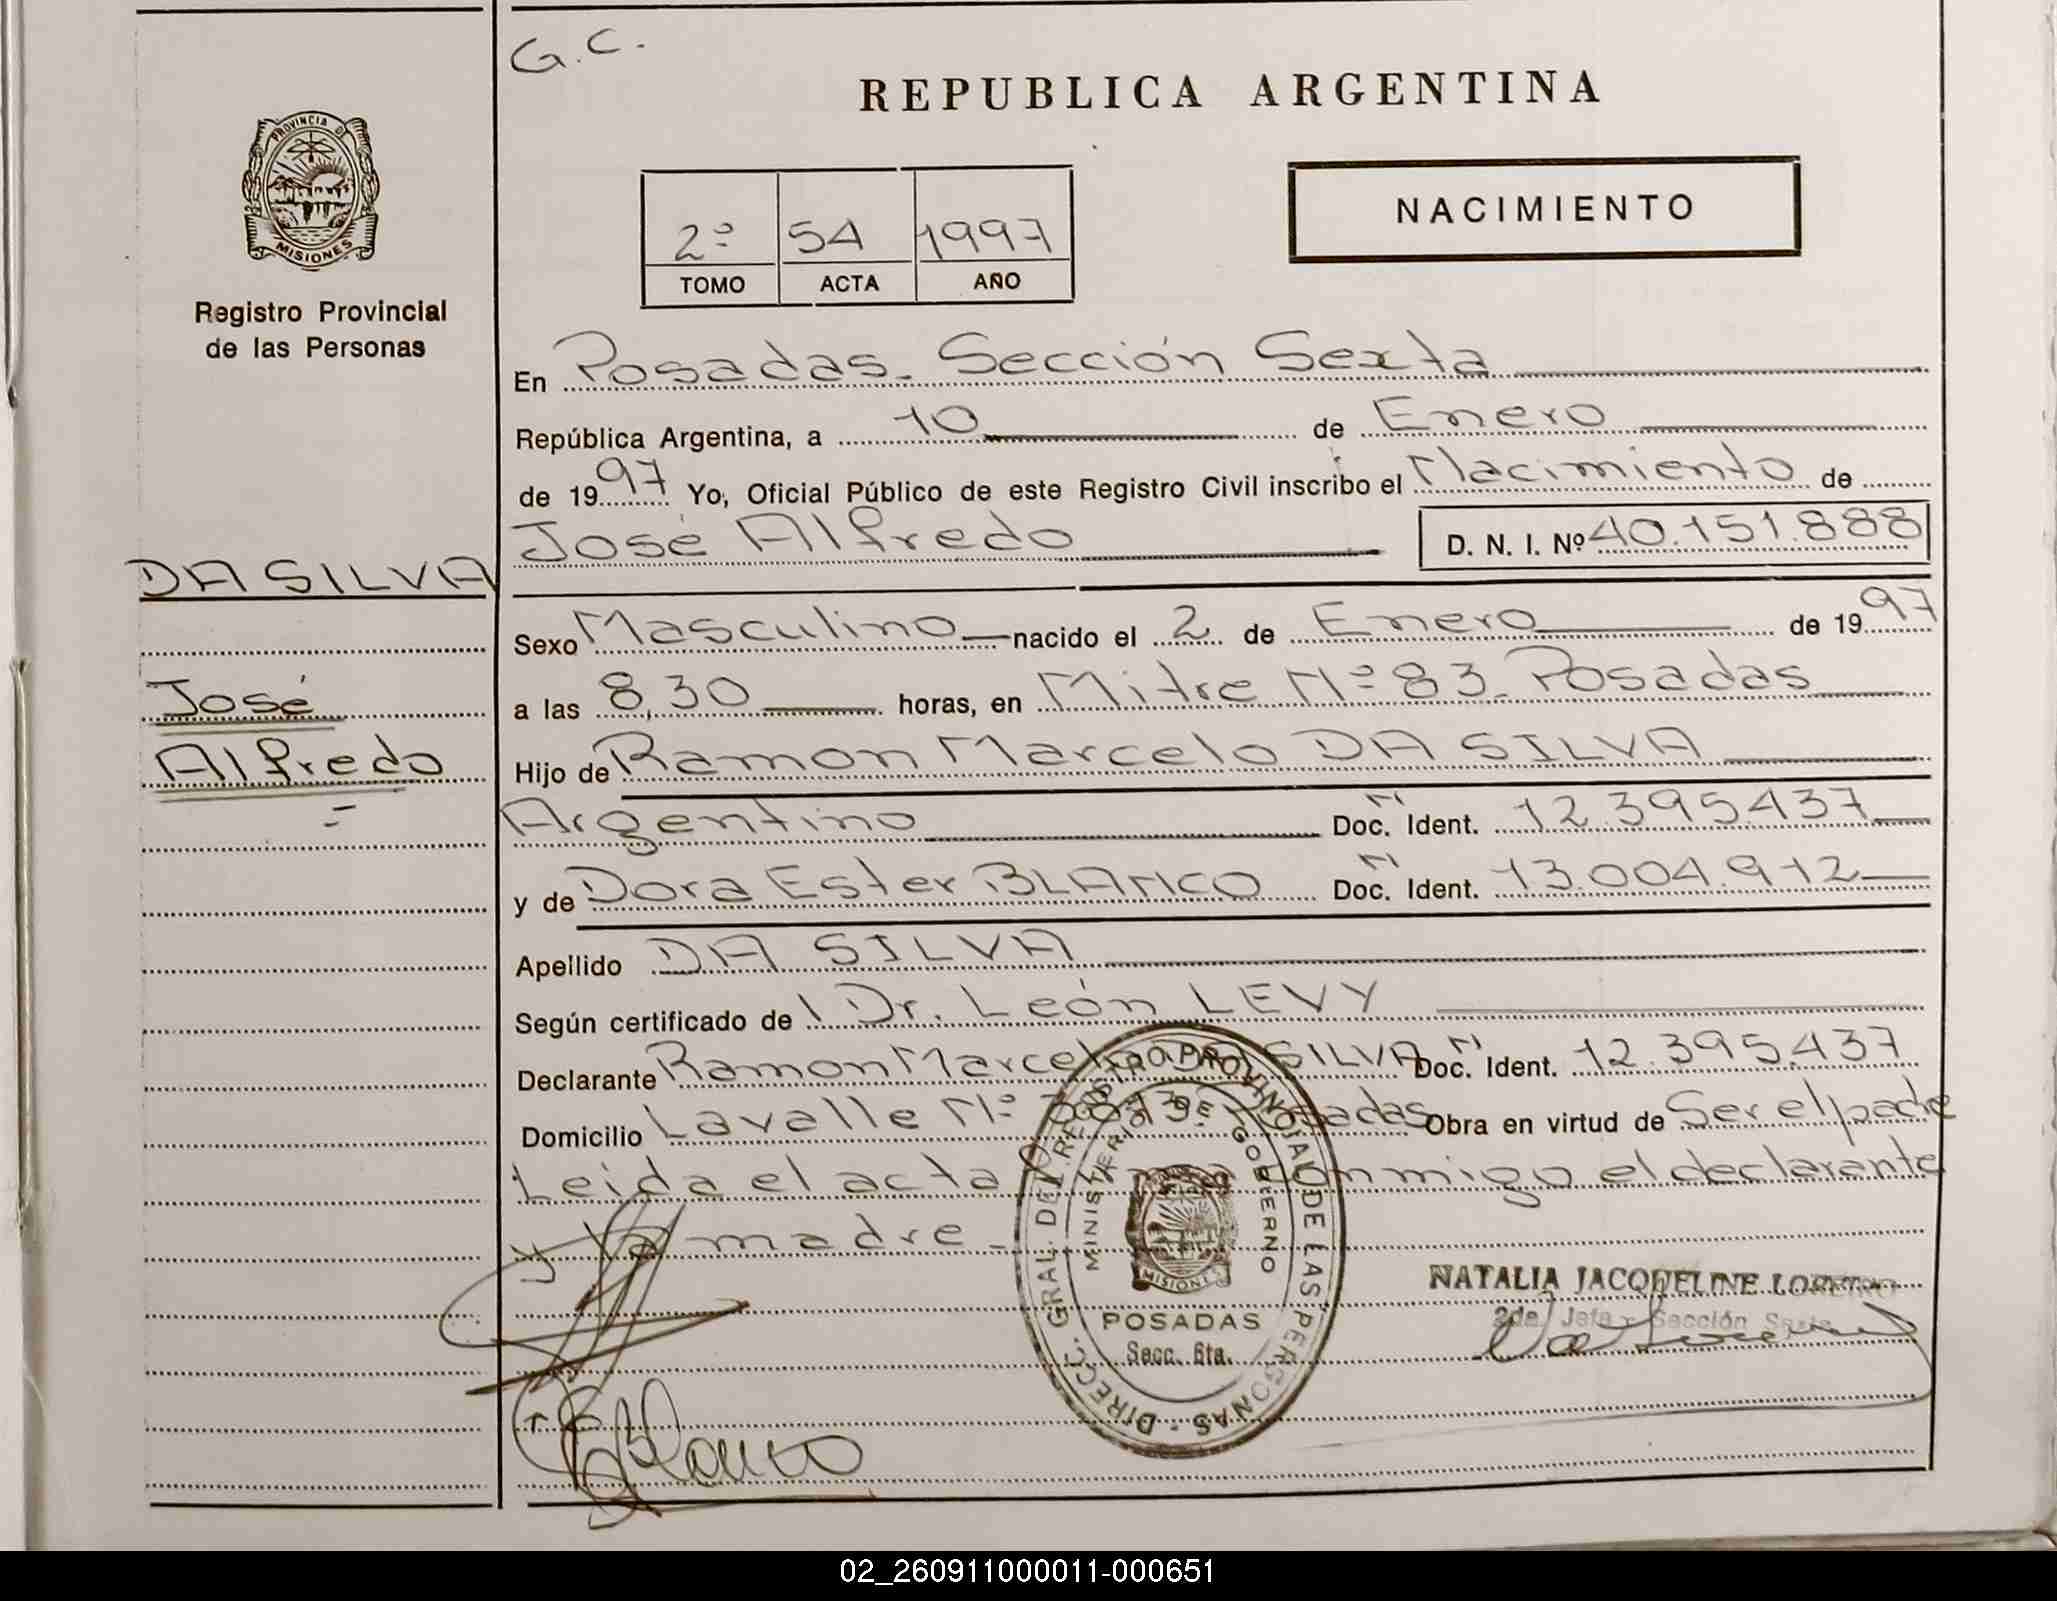 G.C.
REPUBLICA ARGENTINA
PROVINCIA DE
MISIONES
Registro Provincial
de las Personas
2º 54 1997
TOMO ACTA AÑO
NACIMIENTO
En Posadas. Sección Sexta
República Argentina, a 10 de Enero
de 1997 Yo, Oficial Público de este Registro Civil inscribo el Nacimiento de
José Alfredo D. N. I. Nº 40.151.888
DA SILVA
José
Alfredo
Sexo Masculino nacido el 2 de Enero de 1997
a las 8,30 horas, en Mitre Nº 83. Posadas
Hijo de Ramon Marcelo DA SILVA
Argentino Doc. Ident. 12.395.437
y de Dora Ester BLANCO Doc. Ident. 13.004.912
Apellido DA SILVA
Según certificado de Dr. León LEVY
Declarante Ramon Marcelo DA SILVA Doc. Ident. 12.395.437
Domicilio Lavalle Nº Posadas Obra en virtud de Ser el padre
Leida el acta conmigo el declarante
y la madre.
DIRECC. GRAL. DEL REGISTRO PROVINCIAL DE LAS PERSONAS
MINISTERIO DE GOBIERNO
MISIONES
POSADAS
Secc. 6ta.
NATALIA JACQUELINE
2da. Jefa - Sección Sexta
Blanco
02_260911000011-000651